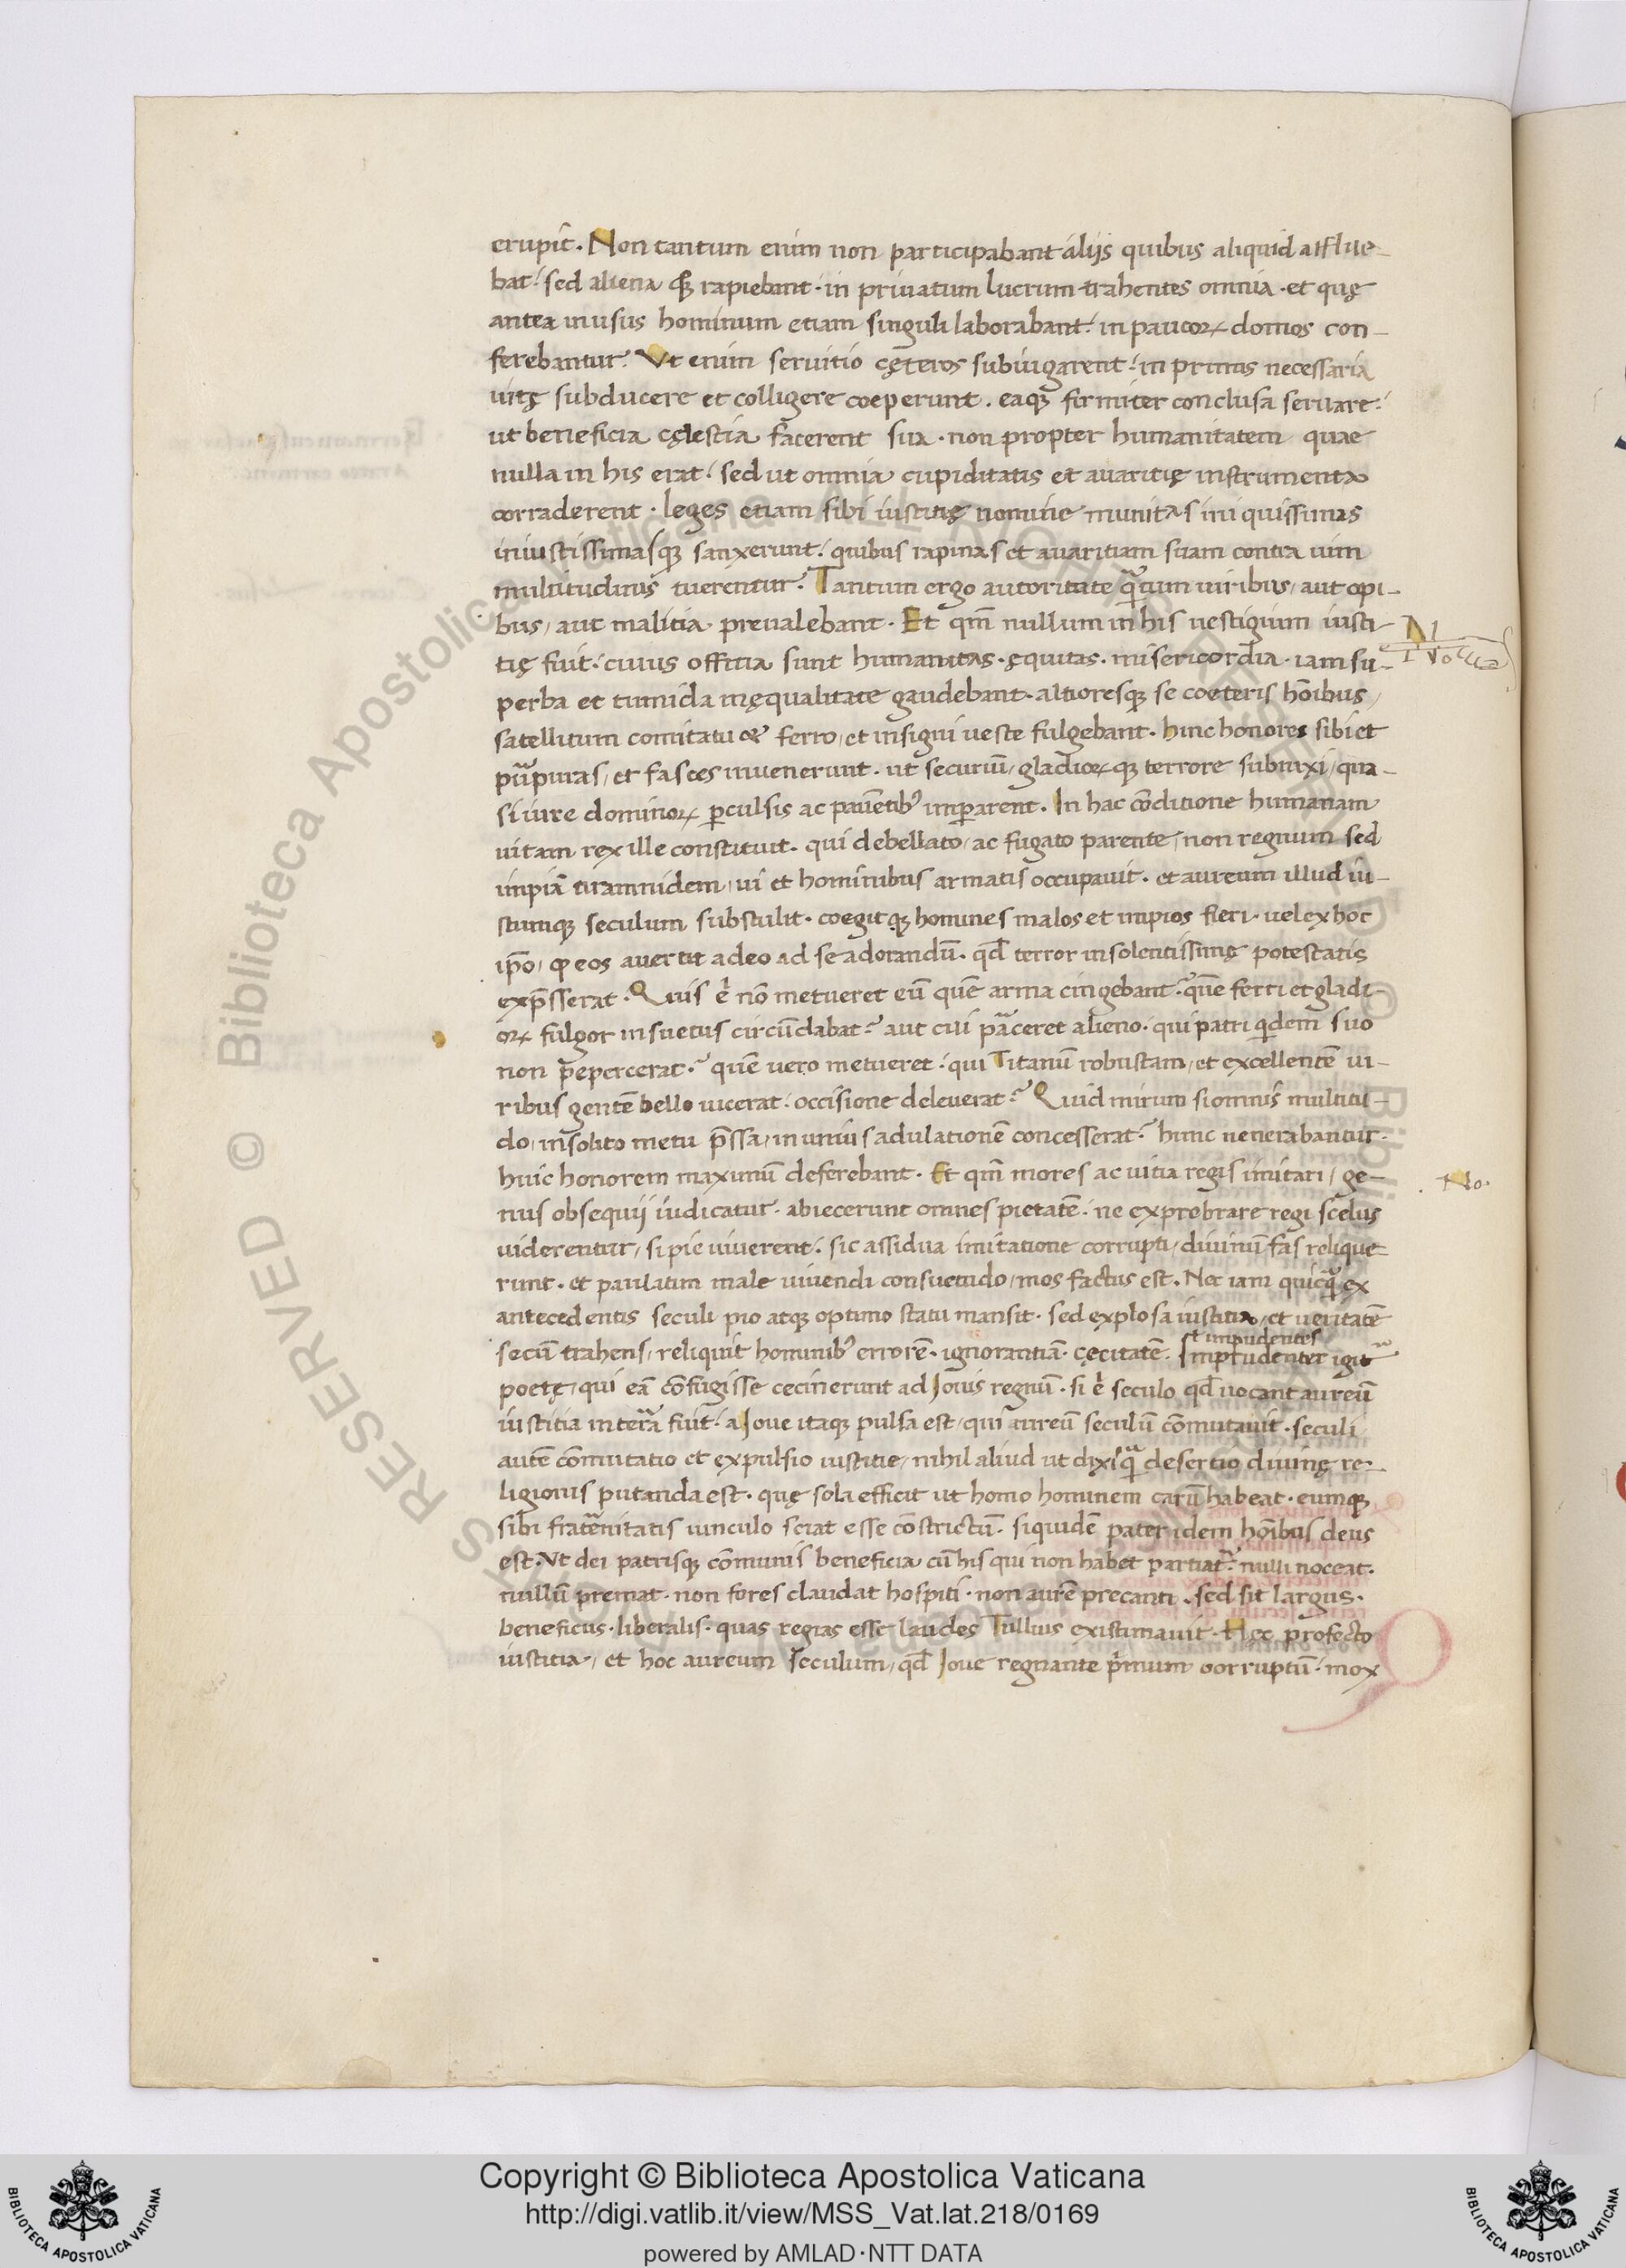 erupit. Non tantum enim non participabant alijs quibus aliquid afflue-
bat: sed aliena quoq; rapiebant. in priuatum lucrum trahentes omnia. et quę
antea in usus hominum etiam singuli laborabant: in paucoꝝ domos con-
ferebantur. Vt enim seruitio cęteros subiugarent: in primis necessaria
uitę subducere et colligere coeperunt. eaq; firmiter conclusa seruare:
ut beneficia cęlestia facerent sua. non propter humanitatem quae
nulla in his erat: sed ut omnia cupiditatis et auaritię instrumenta
corraderent. leges etiam sibi iustitię nomine munitas iniquissimas
iniustissimasq; sanxerunt: quibus rapinas et auaritiam suam contra uim
multitudinis tuerentur. Tantum ergo autoritate q̃tum uiribus, aut opi-
bus, aut malitia preualebant. Et qm̃ nullum in his uestigium iusti-
tię fuit: cuius offitia sunt humanitas. ęquitas. misericordia. iam su-
perba et tumida inęqualitate gaudebant. altioresq; se coeteris hoĩbus,
satellitum comitatu & ferro, et insigni ueste fulgebant. hinc honores sibi et
pũpuras, et fasces inuenerunt. ut securiũ, gladioꝝ q; terrore subnixi, qua-
si iure dominoꝝ ꝑculsis ac pauẽtibꝰ imꝑarent. In hac cõditione humanam
uitam rex ille constituit. qui debellato, ac fugato parente, non regnum sed
impiã tirannidem, ui et hominibus armatis occupauit. et aureum illud iu-
stumq; seculum substulit. coegitq; homines malos et impios fieri. uel ex hoc
ip̃o, ꝙ eos auertit a deo ad se adorandũ. qđ terror insolentissimę potestatis
exp̃sserat. Quis ẽ nõ metueret eũ quẽ arma cingebant? quẽ ferri et gladi-
oꝝ fulgor insuetus circũdabat? aut cui p̃ceret alieno. qui patri q̃dem suo
non p̃epercerat? quẽ uero metueret. qui Titanũ robustam, et excellentẽ ui-
ribus gentẽ bello uicerat. occisione deleuerat? Quid mirum si omnis multitu-
do, insolito metu p̃ssa, in unius adulationẽ concesserat? hunc uenerabantur.
huic honorem maximũ deferebant. Et qm̃ mores ac uitia regis imitari, ge-
nus obsequij iudicatur. abiecerunt omnes pietatẽ. ne exprobrare regi scelus
uiderentur, si pie uiuerent. sic assidua imitatione corrupti, diuinũ fas relique-
runt. et paulatim male uiuendi consuetudo, mos factus est. Nec iam quicq̃ ex
antecedentis seculi pio atq; optimo statu mansit. sed explosa iustitia, et ueritatẽ
secũ trahens, reliquit hominibꝰ errorẽ. ignorantiã. cęcitatẽ. Imprudenter igit᷑
ł impudentes
poetę, qui eã cõfugisse cecinerunt ad Jouis regnũ. si ẽ seculo qđ uocant aureũ
iustitia in terra fuit. a Joue itaq; pulsa est, qui aureũ seculũ cõmutauit. seculi
autẽ cõmutatio et expulsio iustitie, nihil aliud ut dixi q̃ desertio diuinę re-
ligionis putanda est. quę sola efficit ut homo hominem carũ habeat. eumq;
sibi fraternitatis uinculo sciat esse cõstrictũ. siquidẽ pater idem hoĩbus deus
est. Vt dei patrisq; cõmunis beneficia cũ his qui non habẽt partiat᷑. nulli noceat.
nullũ premat. non fores claudat hospiti. non aurẽ precanti. sed sit largus.
beneficus. liberalis. quas regias esse laudes Tullius existimauit. Hęc profecto
iustitia, et hoc aureum seculum, qđ Joue regnante p̃mum corruptũ. mox
Nota
No.
RESERVED © Biblioteca Apostolica Vaticana
Copyright © Biblioteca Apostolica Vaticana
http://digi.vatlib.it/view/MSS_Vat.lat.218/0169
powered by AMLAD·NTT DATA
BIBLIOTECA APOSTOLICA VATICANA
BIBLIOTECA APOSTOLICA VATICANA